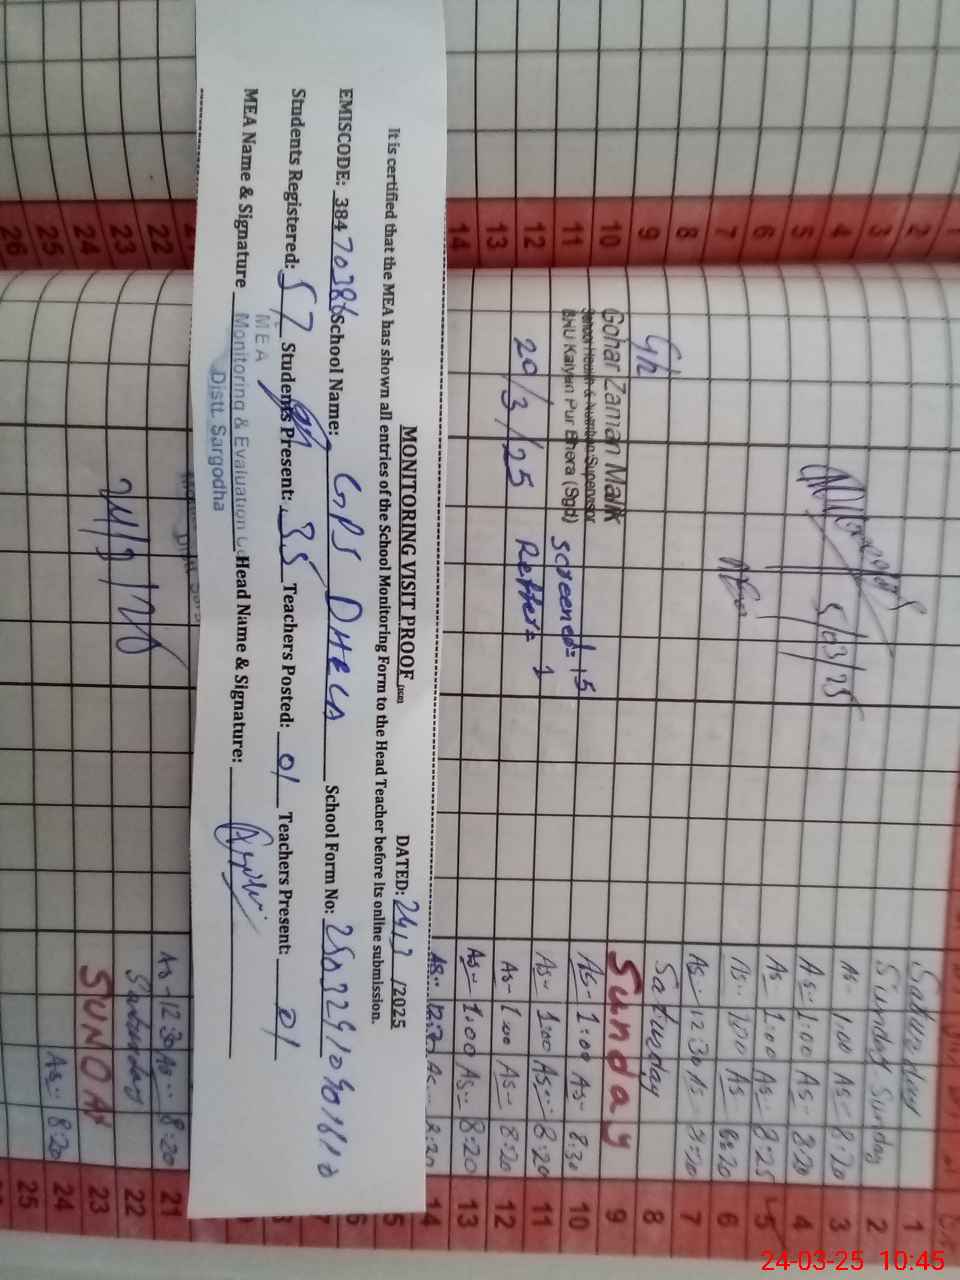 MONITORING VISIT PROOF
DATED: 24/3 /2025
It is certified that the MEA has shown all entries of the School Monitoring Form to the Head Teacher before its online submission.
EMISCODE: 38470386 School Name: GPS DHECA School Form No:
Students Registered: 57 Students Present: 35 Teachers Posted: 01 Teachers Present: 01
MEA Name & Signature Head Name & Signature:
MEA
Monitoring & Evaluation
Distt. Sargodha
1 Saturday
2 Sunday Sunday
3 As- 1:00 As- 8:20
4 As- 1:00 As- 8:20
5 As- 1:00 As- 8:25
5/03/25
6 As- 1:00 As 8:20
7 As- 12:30 As- 8:20
8 Saturday
9 Sunday
10 As- 1:00 As- 8:30
11 As- 1:00 As- 8:20
12 As- 1:00 As- 8:20
13 As- 1:00 As- 8:20
14 As- As- 8:20
Gohar Zaman Malik
School Health & Nutrition Supervisor
BHU Kalyan Pur Bhera (Sgd)
20/3/25
Screened= 15
Reffer= 1
21 As- 12:30 As- 8:20
22 Saturday
23 SUNDAY
24 As- 8:20
25
24/3/25
1 2 3 4 5 6 7 8 9 10 11 12 13 14
22 23 24 25 26
24-03-25 10:45